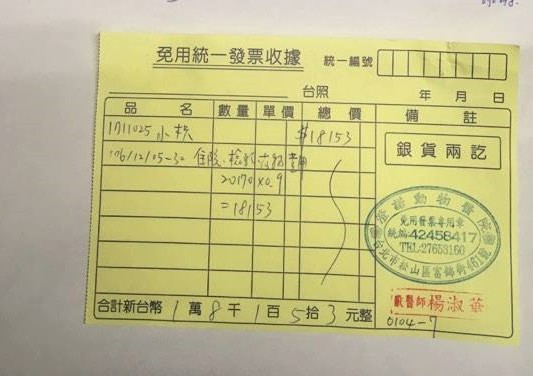 免用統一發票收據
統一編號
台照
年 月 日
品 名 數量 單價 總 價 備 註
1711025 小秋 $18153
106/12/05-30 住院、檢驗
20170×0.9
=18153
銀貨兩訖
動物醫院
免用發票專用章
統編:42458417
TEL:27653160
台北市松山區富錦街
獸醫師 楊淑華
合計新台幣 1 萬 8 千 1 百 5 拾 3 元整
0104-7